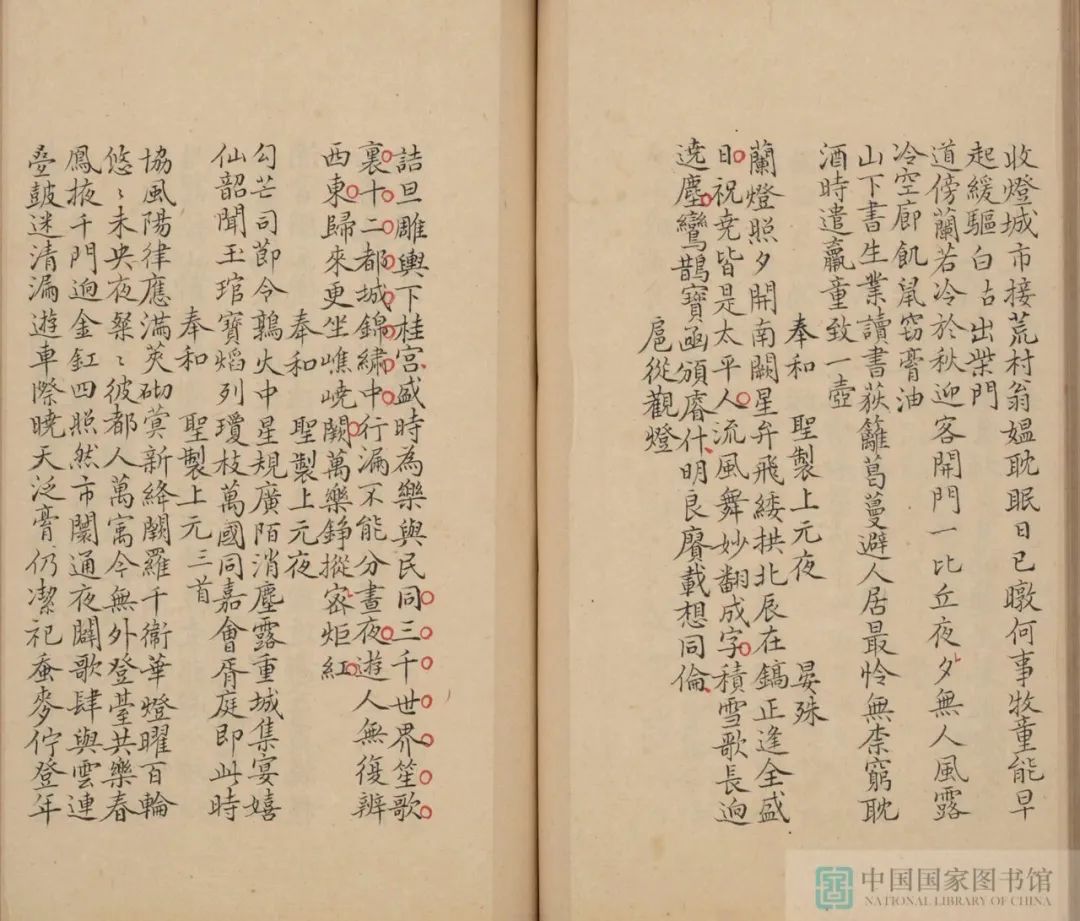 收燈城市接荒村翁媼耽眠日已暾何事牧童能早
起緩驅白牯出柴門
道傍蘭若冷於秋迎客開門一比丘夜夕無人風露
冷空廊飢鼠窃膏油
山下書生業讀書荻籬葛蔓避人居最怜無柰窮耽
酒時遣羸童致一壺
奉和　聖製上元夜　晏殊
蘭燈照夕開南闕星弁飛緌拱北辰在鎬正逢全盛
日祝堯皆是太平人流風舞妙翻成字積雪歌長迥
遶塵鸞鵲寶函頒睿什明良賡載想同倫
扈從觀燈
詰旦雕輿下桂宮盛時為樂與民同三千世界笙歌
裏十二都城錦繡中行漏不能分晝夜遊人無復辨
西東歸來更坐嶕嶢闕萬樂錚摐密炬紅
奉和　聖製上元夜
勾芒司節令鶉火中星規廣陌消塵露重城集宴嬉
仙韶聞玉琯寶熖列瓊枝萬國同嘉會胥庭即此時
奉和　聖製上元三首
協風陽律應滿莢砌蓂新絳闕羅千衞華燈曜百輪
悠〻未央夜粲〻彼都人萬寓今無外登臺共樂春
鳳掖千門迥金釭四照然市闤通夜闢歌肆與雲連
疊皷迷清漏遊車際曉天泛膏仍潔祀蚕麥佇登年
中国国家图书馆
NATIONAL LIBRARY OF CHINA